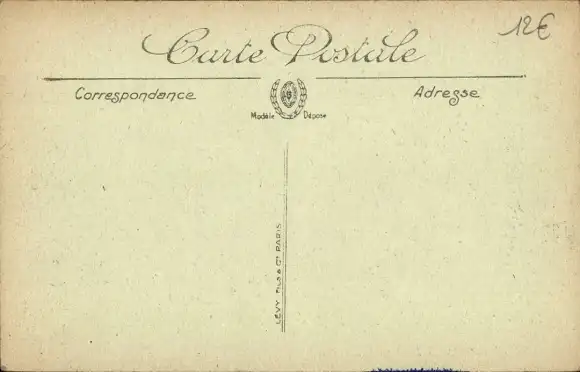 12€
Carte Postale
Correspondance
Adresse
Modèle Déposé
LÉVY FILS & Cie PARIS